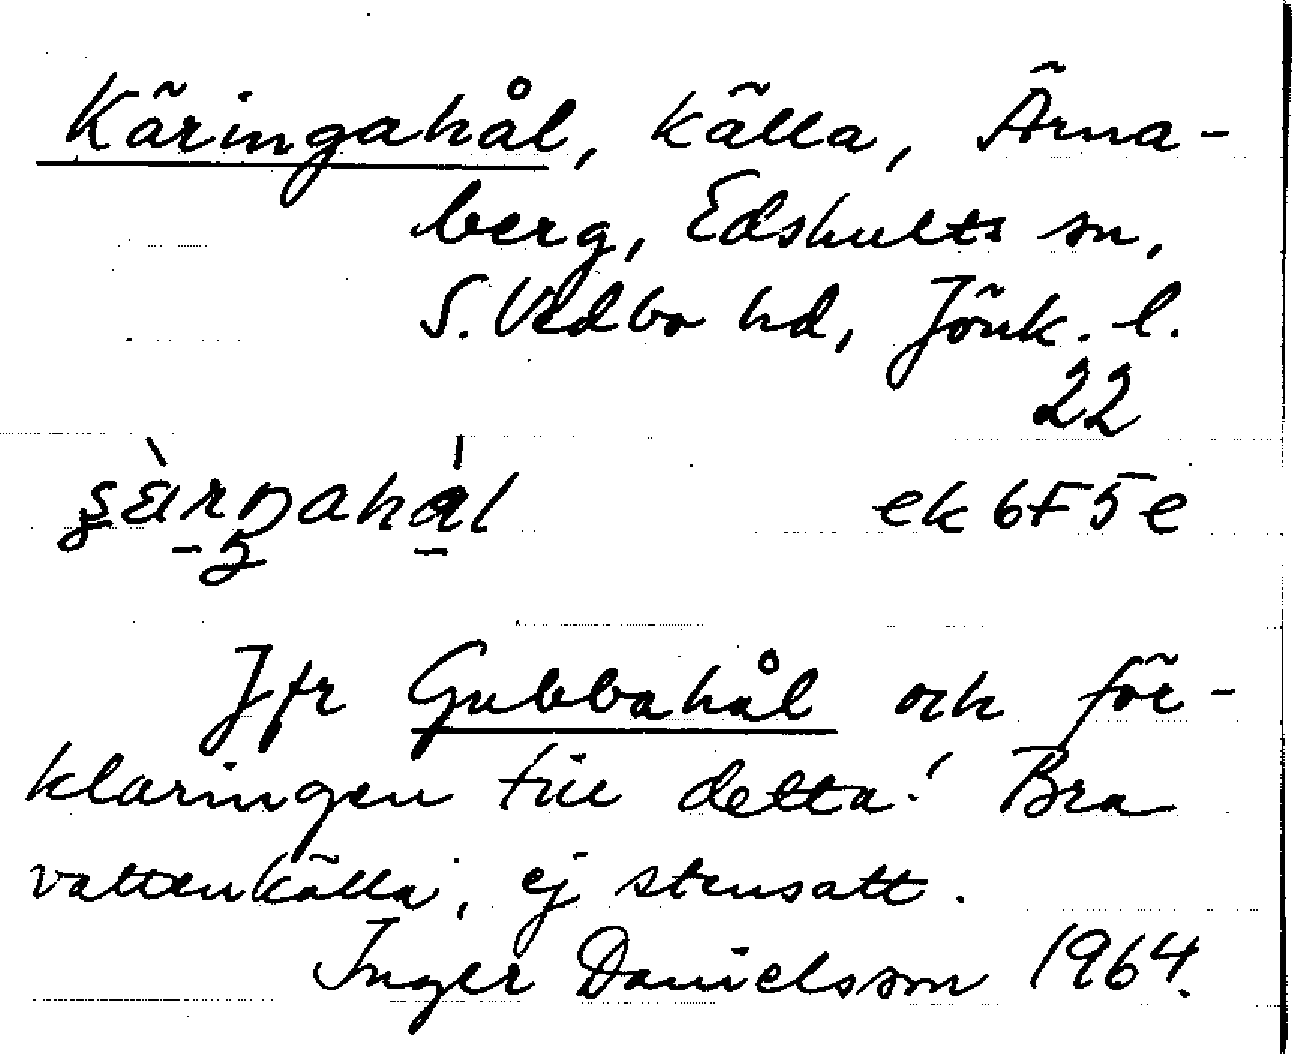 Käringahål, källa, Ärna-
berg, Edshults sn,
S. Vedbo hd, Jönk. l.
22
ek 6F5e
Jfr Gubbahål och för-
klaringen till detta! Bra
vattenkälla, ej stensatt.
Inger Danielsson 1964.